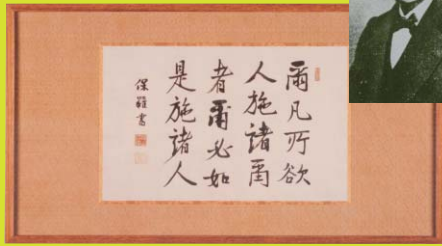 爾凡所欲
人施諸爾
者爾必如
是施諸人
保羅書